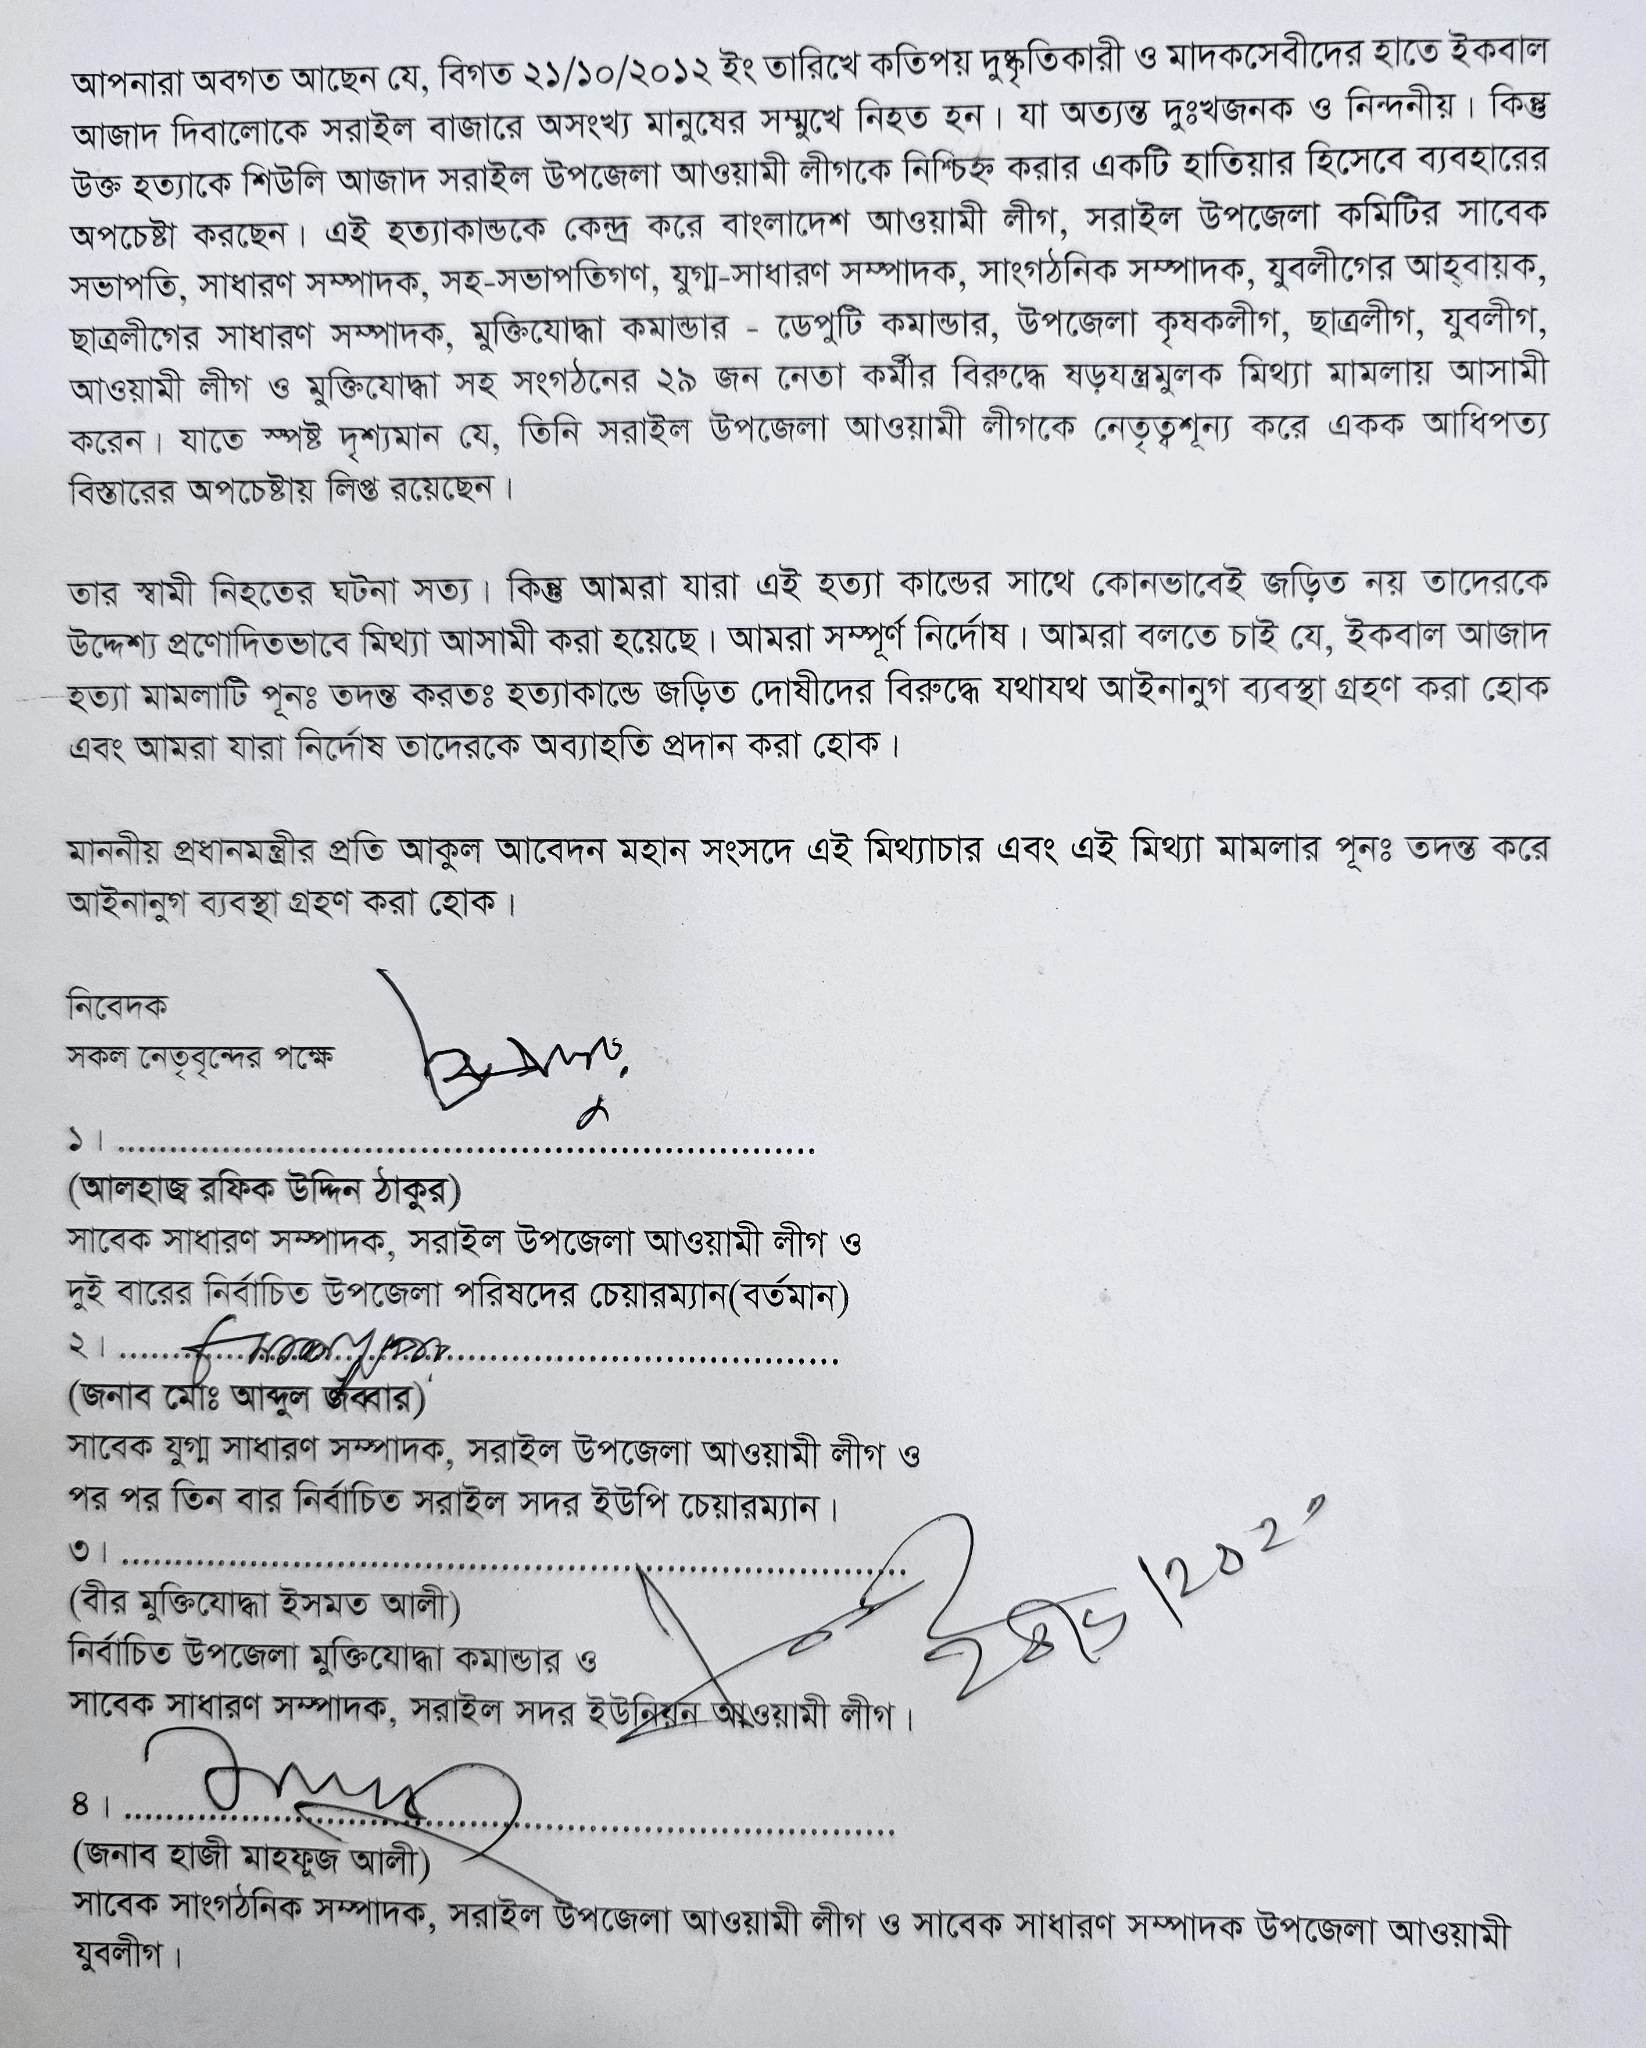 আপনারা অবগত আছেন যে, বিগত ২১/১০/২০১২ ইং তারিখে কতিপয় দুষ্কৃতিকারী ও মাদকসেবীদের হাতে ইকবাল
আজাদ দিবালোকে সরাইল বাজারে অসংখ্য মানুষের সম্মুখে নিহত হন। যা অত্যন্ত দুঃখজনক ও নিন্দনীয়। কিন্তু
উক্ত হত্যাকে শিউলি আজাদ সরাইল উপজেলা আওয়ামী লীগকে নিশ্চিহ্ন করার একটি হাতিয়ার হিসেবে ব্যবহারের
অপচেষ্টা করছেন। এই হত্যাকান্ডকে কেন্দ্র করে বাংলাদেশ আওয়ামী লীগ, সরাইল উপজেলা কমিটির সাবেক
সভাপতি, সাধারণ সম্পাদক, সহ-সভাপতিগণ, যুগ্ম-সাধারণ সম্পাদক, সাংগঠনিক সম্পাদক, যুবলীগের আহ্‌বায়ক,
ছাত্রলীগের সাধারণ সম্পাদক, মুক্তিযোদ্ধা কমান্ডার - ডেপুটি কমান্ডার, উপজেলা কৃষকলীগ, ছাত্রলীগ, যুবলীগ,
আওয়ামী লীগ ও মুক্তিযোদ্ধা সহ সংগঠনের ২৯ জন নেতা কর্মীর বিরুদ্ধে ষড়যন্ত্রমুলক মিথ্যা মামলায় আসামী
করেন। যাতে স্পষ্ট দৃশ্যমান যে, তিনি সরাইল উপজেলা আওয়ামী লীগকে নেতৃত্বশূন্য করে একক আধিপত্য
বিস্তারের অপচেষ্টায় লিপ্ত রয়েছেন।
তার স্বামী নিহতের ঘটনা সত্য। কিন্তু আমরা যারা এই হত্যা কান্ডের সাথে কোনভাবেই জড়িত নয় তাদেরকে
উদ্দেশ্য প্রণোদিতভাবে মিথ্যা আসামী করা হয়েছে। আমরা সম্পূর্ণ নির্দোষ। আমরা বলতে চাই যে, ইকবাল আজাদ
হত্যা মামলাটি পূনঃ তদন্ত করতঃ হত্যাকান্ডে জড়িত দোষীদের বিরুদ্ধে যথাযথ আইনানুগ ব্যবস্থা গ্রহণ করা হোক
এবং আমরা যারা নির্দোষ তাদেরকে অব্যাহতি প্রদান করা হোক।
মাননীয় প্রধানমন্ত্রীর প্রতি আকুল আবেদন মহান সংসদে এই মিথ্যাচার এবং এই মিথ্যা মামলার পূনঃ তদন্ত করে
আইনানুগ ব্যবস্থা গ্রহণ করা হোক।
নিবেদক
সকল নেতৃবৃন্দের পক্ষে
১। ....................................................................
(আলহাজ্ব রফিক উদ্দিন ঠাকুর)
সাবেক সাধারণ সম্পাদক, সরাইল উপজেলা আওয়ামী লীগ ও
দুই বারের নির্বাচিত উপজেলা পরিষদের চেয়ারম্যান(বর্তমান)
২। ....................................................................
(জনাব মোঃ আব্দুল জব্বার)
সাবেক যুগ্ম সাধারণ সম্পাদক, সরাইল উপজেলা আওয়ামী লীগ ও
পর পর তিন বার নির্বাচিত সরাইল সদর ইউপি চেয়ারম্যান।
৩। ....................................................................
(বীর মুক্তিযোদ্ধা ইসমত আলী)
নির্বাচিত উপজেলা মুক্তিযোদ্ধা কমান্ডার ও
সাবেক সাধারণ সম্পাদক, সরাইল সদর ইউনিয়ন আওয়ামী লীগ।
৪। ....................................................................
(জনাব হাজী মাহফুজ আলী)
সাবেক সাংগঠনিক সম্পাদক, সরাইল উপজেলা আওয়ামী লীগ ও সাবেক সাধারণ সম্পাদক উপজেলা আওয়ামী
যুবলীগ।